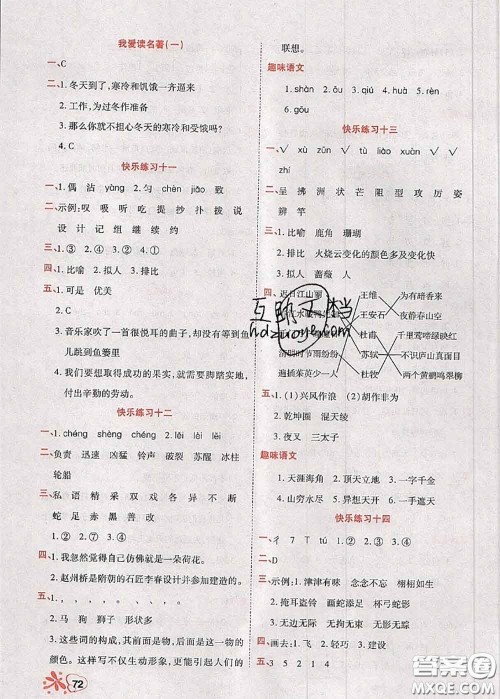 我爱读名著(一)
一、C
二、1. 冬天到了,寒冷和饥饿一齐逼来
2. 工作,为过冬作准备
3. 那么你就不担心冬天的寒冷和受饿吗?
4. C
快乐练习十一
一、1. 偶 沾 yàng 2. 匀 chèn jiāo 致
二、示例:叹 吸 听 吃 提 抄 扑 拨 说
设 计 记 组 继 续 约
三、1. ③ 2. ④ 3. ① 4. ②
四、1. 拟人 2. 比喻 3. 排比
五、1. 可是 优美
2. C
3. 音乐家吹了一首很悦耳的曲子,却没有任何的鱼
儿跳到鱼篓里
4. 我们要想取得成功的果实,就需要脚踏实地,
付出辛勤的劳动。
快乐练习十二
一、1. chéng shéng chéng 2. lěi lèi léi
二、负责 迅速 凶猛 铃声 破裂 深浅 冰棍
轮船
三、私 语 精 采 双 戏 各 异 不 断
蛇 足 赤 黑 善 改
四、1. 我忽然觉得自己仿佛就是一朵荷花。
2. 赵州桥是隋朝的石匠李春设计并参加建造的。
2. 马 狗 狮子 形状多
3. 这些词的构成,其前面是物,后面是这一物的
颜色。这样写不仅生动形象,更能引起人们的
72
联想。
趣味语文
1. shàn 2. dǎ 3. qiú 4. huá 5. rèn
6. gǒu
快乐练习十三
一、√ xú zǔn √ tú liáo xuàn √ √
zhí
二、呈 拂 洲 状 芒 模 型 攻 厉 姿
辨 竿
三、1. 比喻 鹿角 珊瑚
2. 排比 火烧云的颜色多且变化快
3. 拟人 蔷薇 人
四、迟日江山丽 王维 为有暗香来
夜静春山空
杜甫 千里莺啼绿映红
清明时节雨纷纷 苏轼 不识庐山真面目
遍插茱萸少一人 杜牧 两个黄鹂鸣翠柳
五、1. (1)兴风作浪 (2)胡作非为
2. 乾坤圈 混天绫
3. 夜叉 三太子
趣味语文
1. 天涯海角 2. 顶天立地 3. 一字千金
4. 山穷水尽 5. 异想天开 6. 一手遮天
快乐练习十四
一、彳 7 11 ② 1. ① 2. ③ 3. ④
二、D
三、示例:1. 津津有味 念念不忘 栩栩如生
2. 掩耳盗铃 画蛇添足 杯弓蛇影
3. 无影无踪 无拘无束 无影无形
四、画去:1. 轻巧 2. 成功 3. 建筑
五、3 5 2 1 4
互助文档
hdzuoye.com
答案圈
MXQE.COM